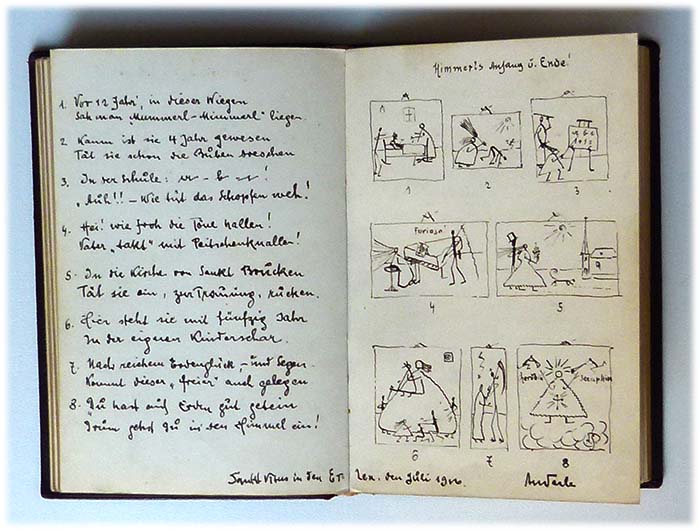 1. Vor 12 Jahr', in dieser Wiegen
Sah man "Mummerl-Mimmerl" liegen.
2 Kaum ist sie 4 Jahr gewesen
Tät sie schon die Buben dreschen
3. In der Schüle:
"Auh!! - Wie tüt das Schopfen weh!
4. Hei! wie froh die Töne hallen!
Vater "takt" mit Peitschenknallen!
5. In die Kirche von Sankt Brücken
Tät sie ein, zur Trauung, rücken.
6. Hier steht sie mit fünfzig Jahr
In der eigenen Kinderschar.
7. Nach reichem Erdenglück, - und Segen.
Kommt dieser "freier" auch gelegen
8. Du hast auf Erden gut getan
Drum gehst du in den Himmel ein!
Sankt Vitus in den
Himmerl's Anfang ü. Ende!
1
2
3
furioso
4
5
6
7
8
den Juli